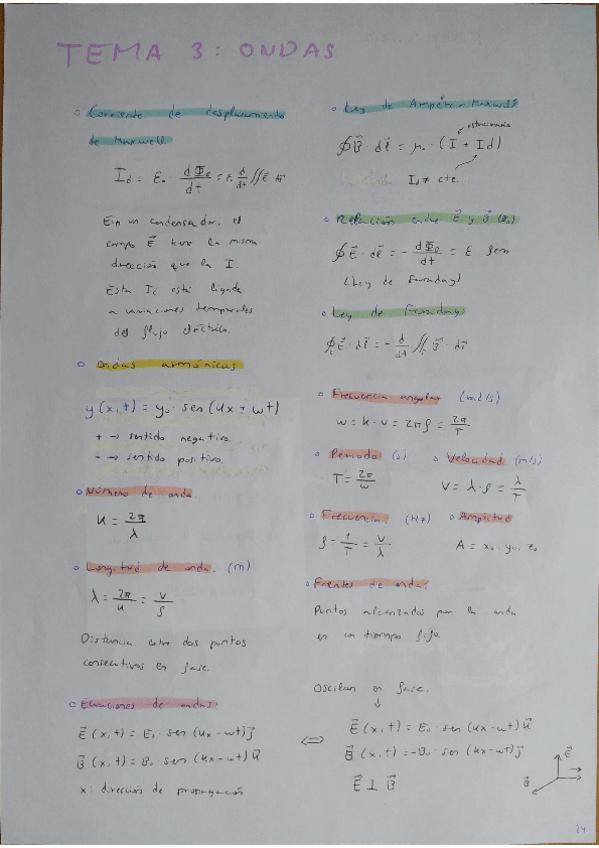 TEMA 3: ONDAS
○ Corriente de desplazamiento
de Maxwell
I_d = ε₀ · dΦe/dt = ε₀ d/dt ∬ E⃗
En un condensador, el
campo E⃗ tiene la misma
dirección que la I.
Esta Id está ligada
a variaciones temporales
del flujo eléctrico.
○ Ondas armónicas
y(x,t) = y₀ · sen(kx ± wt)
+ → sentido negativo.
- → sentido positivo.
○ Número de onda
k = 2π/λ
○ Longitud de onda. (m)
λ = 2π/k = v/f
Distancia entre dos puntos
consecutivos en fase.
○ Ecuaciones de ondas:
E⃗(x,t) = E₀ · sen(kx-wt) j⃗
B⃗(x,t) = B₀ · sen(kx-wt) k⃗
x: dirección de propagación
○ Ley de Ampère-Maxwell
estacionaria
∮ B⃗ · dl⃗ = μ₀ · (I + Id)
Id ≠ cte.
○ Relación entre E⃗ y B⃗
∮ E⃗ · dl⃗ = - dΦ/dt = ε fem
(Ley de Faraday)
○ Ley de Faraday:
∮ E⃗ · dl⃗ = - d/dt ∬ B⃗ ·
○ Frecuencia angular (rad/s)
w = k · v = 2πf = 2π/T
○ Periodo (s) ○ Velocidad (m/s)
T = 2π/w V = λ · f = λ/T
○ Frecuencia: (Hz) ○ Amplitud
f = 1/T = v/λ A = x₀, y₀, z₀
○ Frentes de onda:
Puntos alcanzados por la onda
en un tiempo fijo.
Oscilan en fase.
↓
⇔ E⃗(x,t) = E₀ · sen(kx-wt) k⃗
B⃗(x,t) = -B₀ · sen(kx-wt) j⃗
E⃗ ⊥ B⃗
E⃗
B⃗